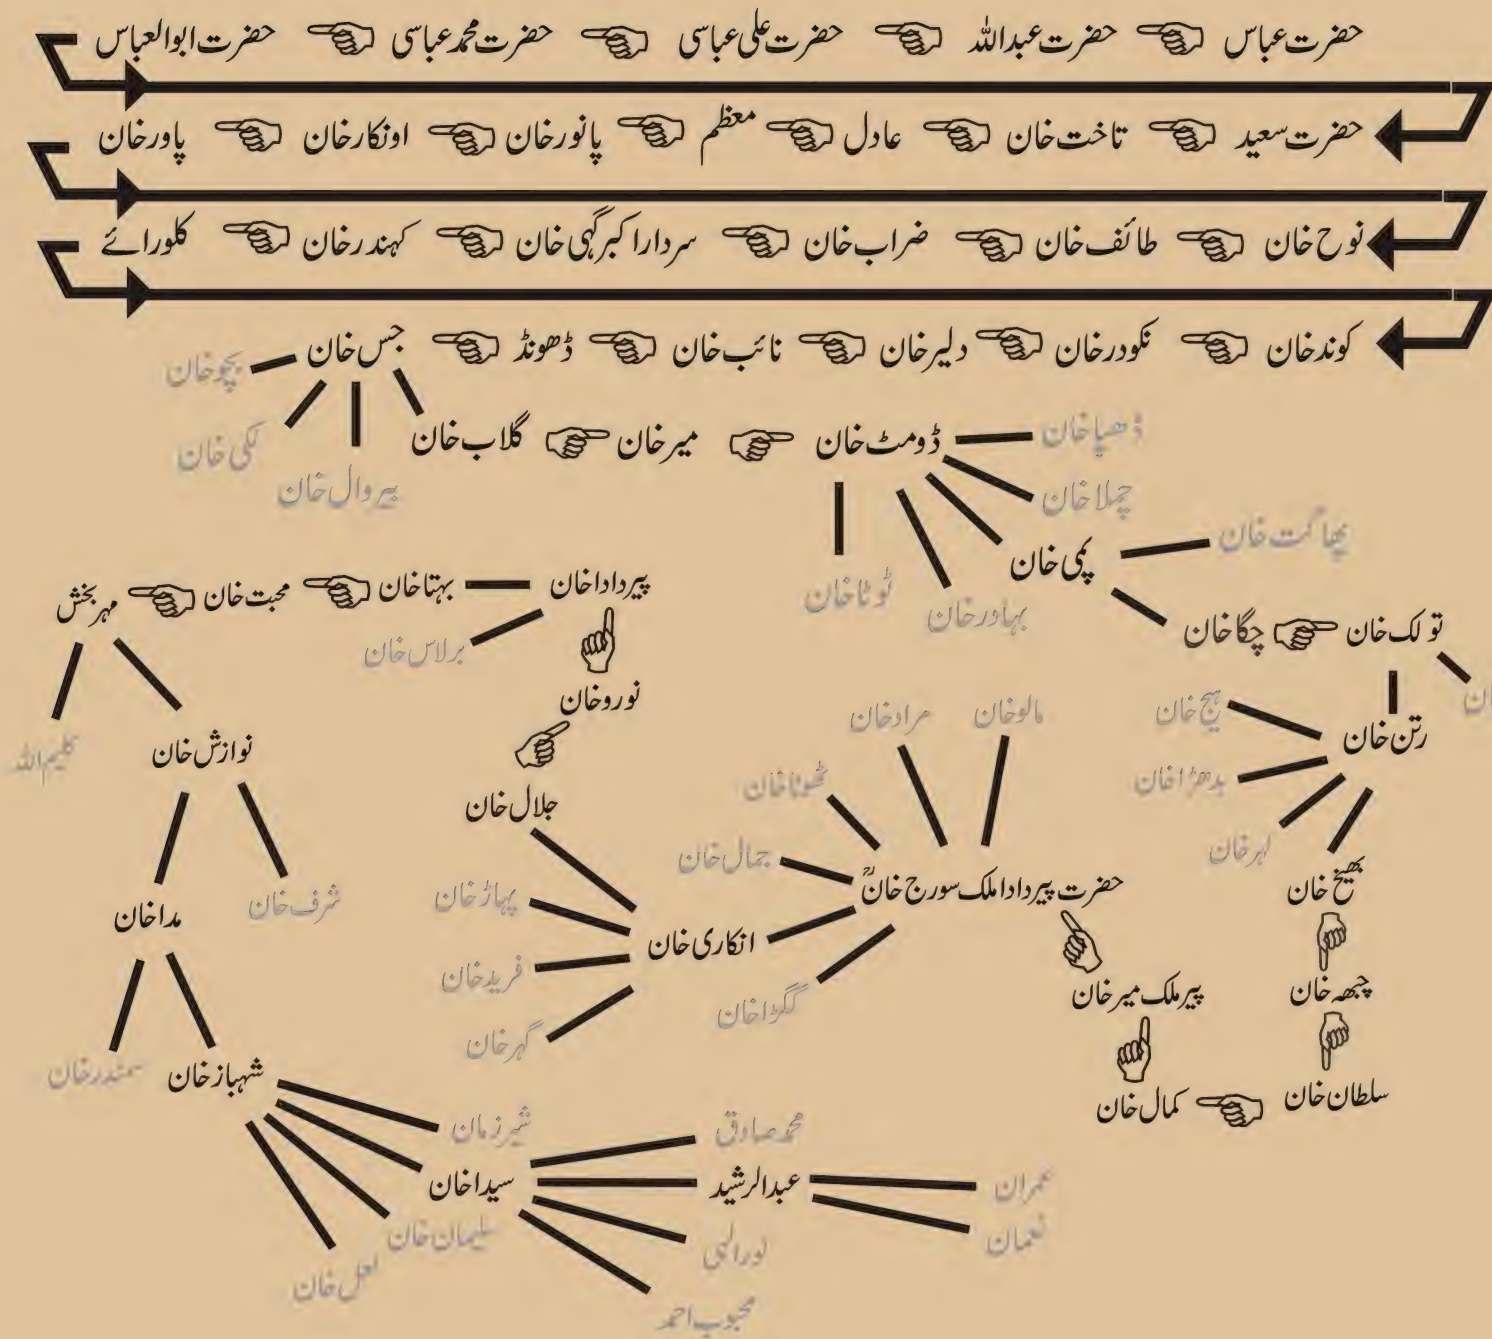 حضرت عباس حضرت عبداللہ حضرت علی عباسی حضرت محمد عباسی حضرت ابوالعباس
حضرت سعید تاخت خان عادل معظم پانور خان اونکار خان پاور خان
نوح خان طائف خان ضراب خان سردار اکبر گہی خان کہندر خان کلورائے
کوند خان نکودر خان دلیر خان نائب خان ڈھونڈ جس خان
بچو خان
لکی خان
بیروال خان
گلاب خان میر خان ڈومٹ خان ڈھیا خان
چملا خان
پمی خان پھاگت خان
ٹوٹا خان
بہادر خان
چگا خان تولک خان
رتن خان
ہیج خان
بدھڑا خان
لہر خان
بھیخ خان
چبھہ خان
سلطان خان کمال خان
پیر ملک میر خان
حضرت پیر دادا ملک سورج خانؒ
مالو خان
مراد خان
ٹھوٹا خان
جمال خان
انکاری خان
گگڑا خان
جلال خان
پہاڑ خان
فرید خان
گہر خان
نورو خان
پیر دادا خان بہتا خان محبت خان مہر بخش
برلاس خان
کلیم اللہ
نوازش خان
شرف خان
مدا خان
سمندر خان
شہباز خان
شیر زمان
سیدا خان
سلیمان خان
لعل خان
محمد صادق
عبدالرشید
نور الہی
محبوب احمد
عمران
نعمان